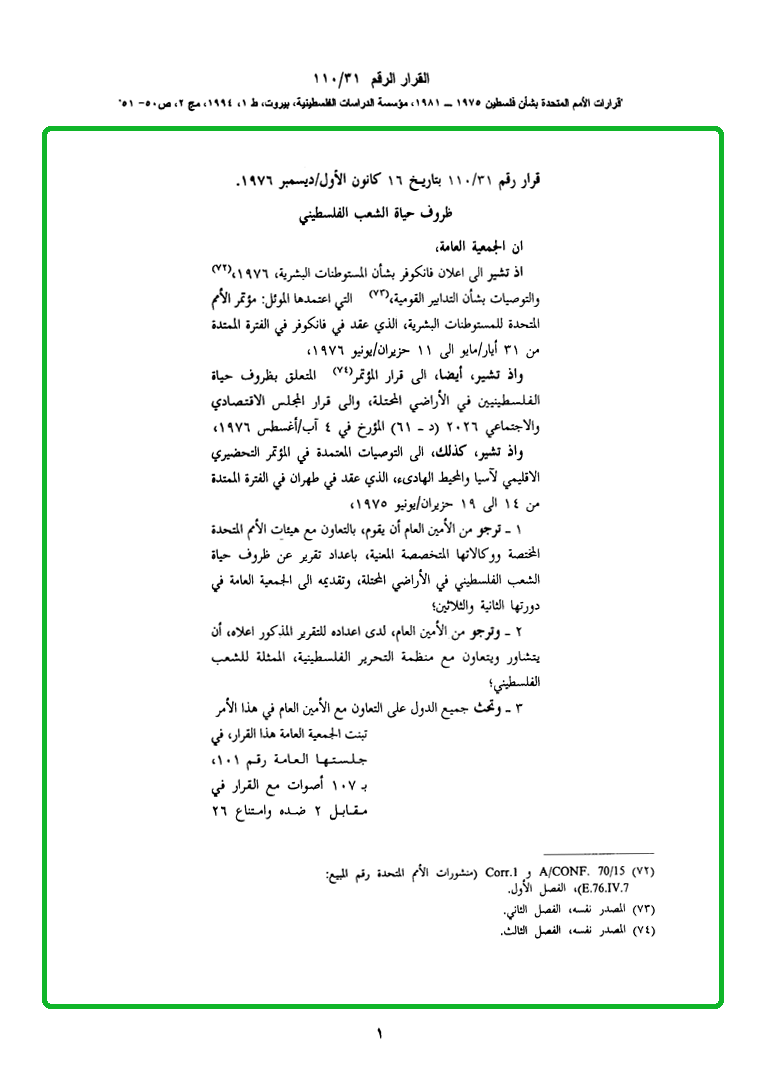 القرار الرقم ٣١/١١٠
"قرارات الأمم المتحدة بشأن فلسطين ١٩٧٥ ــ ١٩٨١، مؤسسة الدراسات الفلسطينية، بيروت، ط ١، ١٩٩٤، مج ٢، ص٥٠- ٥١"
قرار رقم ٣١/١١٠ بتاريخ ١٦ كانون الأول/ديسمبر ١٩٧٦.
ظروف حياة الشعب الفلسطيني
ان الجمعية العامة،
اذ تشير الى اعلان فانكوفر بشأن المستوطنات البشرية، ١٩٧٦،(٧٢)
والتوصيات بشأن التدابير القومية،(٧٣) التي اعتمدها الموئل: مؤتمر الأمم
المتحدة للمستوطنات البشرية، الذي عقد في فانكوفر في الفترة الممتدة
من ٣١ أيار/مايو الى ١١ حزيران/يونيو ١٩٧٦،
واذ تشير، أيضا، الى قرار المؤتمر(٧٤) المتعلق بظروف حياة
الفلسطينيين في الأراضي المحتلة، والى قرار المجلس الاقتصادي
والاجتماعي ٢٠٢٦ (د ـ ٦١) المؤرخ في ٤ آب/أغسطس ١٩٧٦،
واذ تشير، كذلك، الى التوصيات المعتمدة في المؤتمر التحضيري
الاقليمي لآسيا والمحيط الهادىء، الذي عقد في طهران في الفترة الممتدة
من ١٤ الى ١٩ حزيران/يونيو ١٩٧٥،
١ ـ ترجو من الأمين العام أن يقوم، بالتعاون مع هيئات الأمم المتحدة
المختصة ووكالاتها المتخصصة المعنية، باعداد تقرير عن ظروف حياة
الشعب الفلسطيني في الأراضي المحتلة، وتقديمه الى الجمعية العامة في
دورتها الثانية والثلاثين؛
٢ ـ وترجو من الأمين العام، لدى اعداده للتقرير المذكور اعلاه، أن
يتشاور ويتعاون مع منظمة التحرير الفلسطينية، الممثلة للشعب
الفلسطيني؛
٣ ـ وتحث جميع الدول على التعاون مع الأمين العام في هذا الأمر
تبنت الجمعية العامة هذا القرار، في
جلستها العامة رقم ١٠١،
بـ ١٠٧ أصوات مع القرار في
مقابل ٢ ضده وامتناع ٢٦
(٧٢) A/CONF. 70/15 و Corr.1 (منشورات الأمم المتحدة رقم المبيع:
E.76.IV.7)، الفصل الأول.
(٧٣) المصدر نفسه، الفصل الثاني.
(٧٤) المصدر نفسه، الفصل الثالث.
١